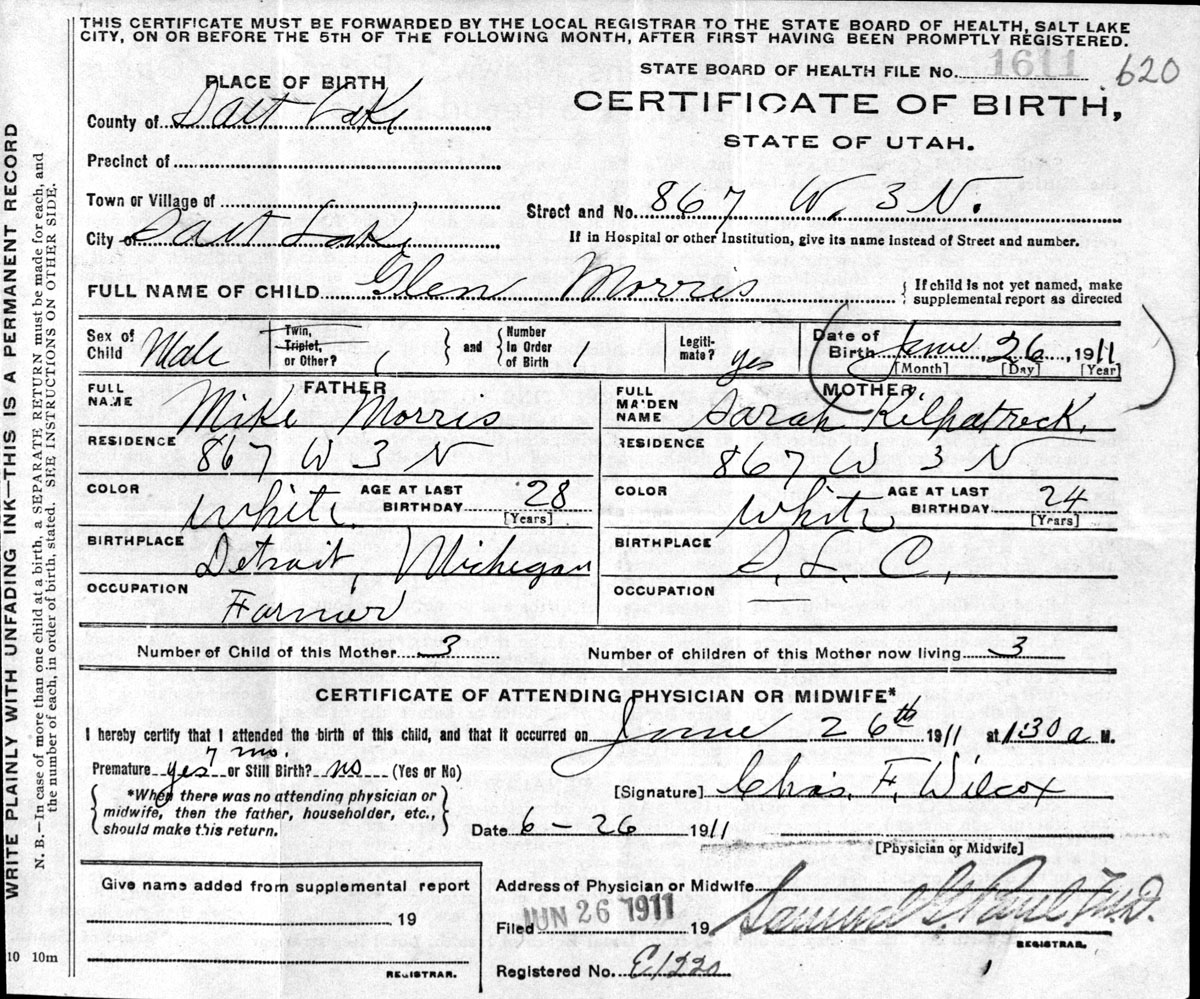 THIS CERTIFICATE MUST BE FORWARDED BY THE LOCAL REGISTRAR TO THE STATE BOARD OF HEALTH, SALT LAKE
CITY, ON OR BEFORE THE 5TH OF THE FOLLOWING MONTH, AFTER FIRST HAVING BEEN PROMPTLY REGISTERED.
STATE BOARD OF HEALTH FILE No. 1611 620
PLACE OF BIRTH
CERTIFICATE OF BIRTH,
County of Salt Lake
STATE OF UTAH.
Precinct of
Town or Village of
Street and No. 867 W. 3 N.
City of Salt Lake
If in Hospital or other Institution, give its name instead of Street and number.
FULL NAME OF CHILD Glen Morris { If child is not yet named, make supplemental report as directed
Sex of Child Male Twin, Triplet, or Other? } and { Number In Order of Birth } Legiti-mate? yes Date of Birth June 26, 1911
[Month] [Day] [Year]
FATHER
FULL NAME Mike Morris
RESIDENCE 867 W 3 N
COLOR White AGE AT LAST BIRTHDAY 28 [Years]
BIRTHPLACE Detroit, Michigan
OCCUPATION Farrier
MOTHER
FULL MAIDEN NAME Sarah Kilpatreck.
RESIDENCE 867 W 3 N
COLOR White AGE AT LAST BIRTHDAY 24 [Years]
BIRTHPLACE S. L. C.
OCCUPATION —
Number of Child of this Mother 3 Number of children of this Mother now living 3
CERTIFICATE OF ATTENDING PHYSICIAN OR MIDWIFE*
I hereby certify that I attended the birth of this child, and that it occurred on June 26th 1911 at 1:30 a M.
7 mo.
Premature yes or Still Birth? no (Yes or No)
[Signature] Chas. F. Wilcox
{ *When there was no attending physician or
midwife, then the father, householder, etc.,
should make this return. }
Date 6-26 1911
[Physician or Midwife]
Give name added from supplemental report
19
REGISTRAR.
Address of Physician or Midwife
Filed JUN 26 1911 19 Samuel G. Paul M.D.
REGISTRAR.
Registered No. E1220
WRITE PLAINLY WITH UNFADING INK—THIS IS A PERMANENT RECORD
N. B.—In case of more than one child at a birth, a SEPARATE RETURN must be made for each, and
the number of each, in order of birth, stated. SEE INSTRUCTIONS ON OTHER SIDE.
10 10m